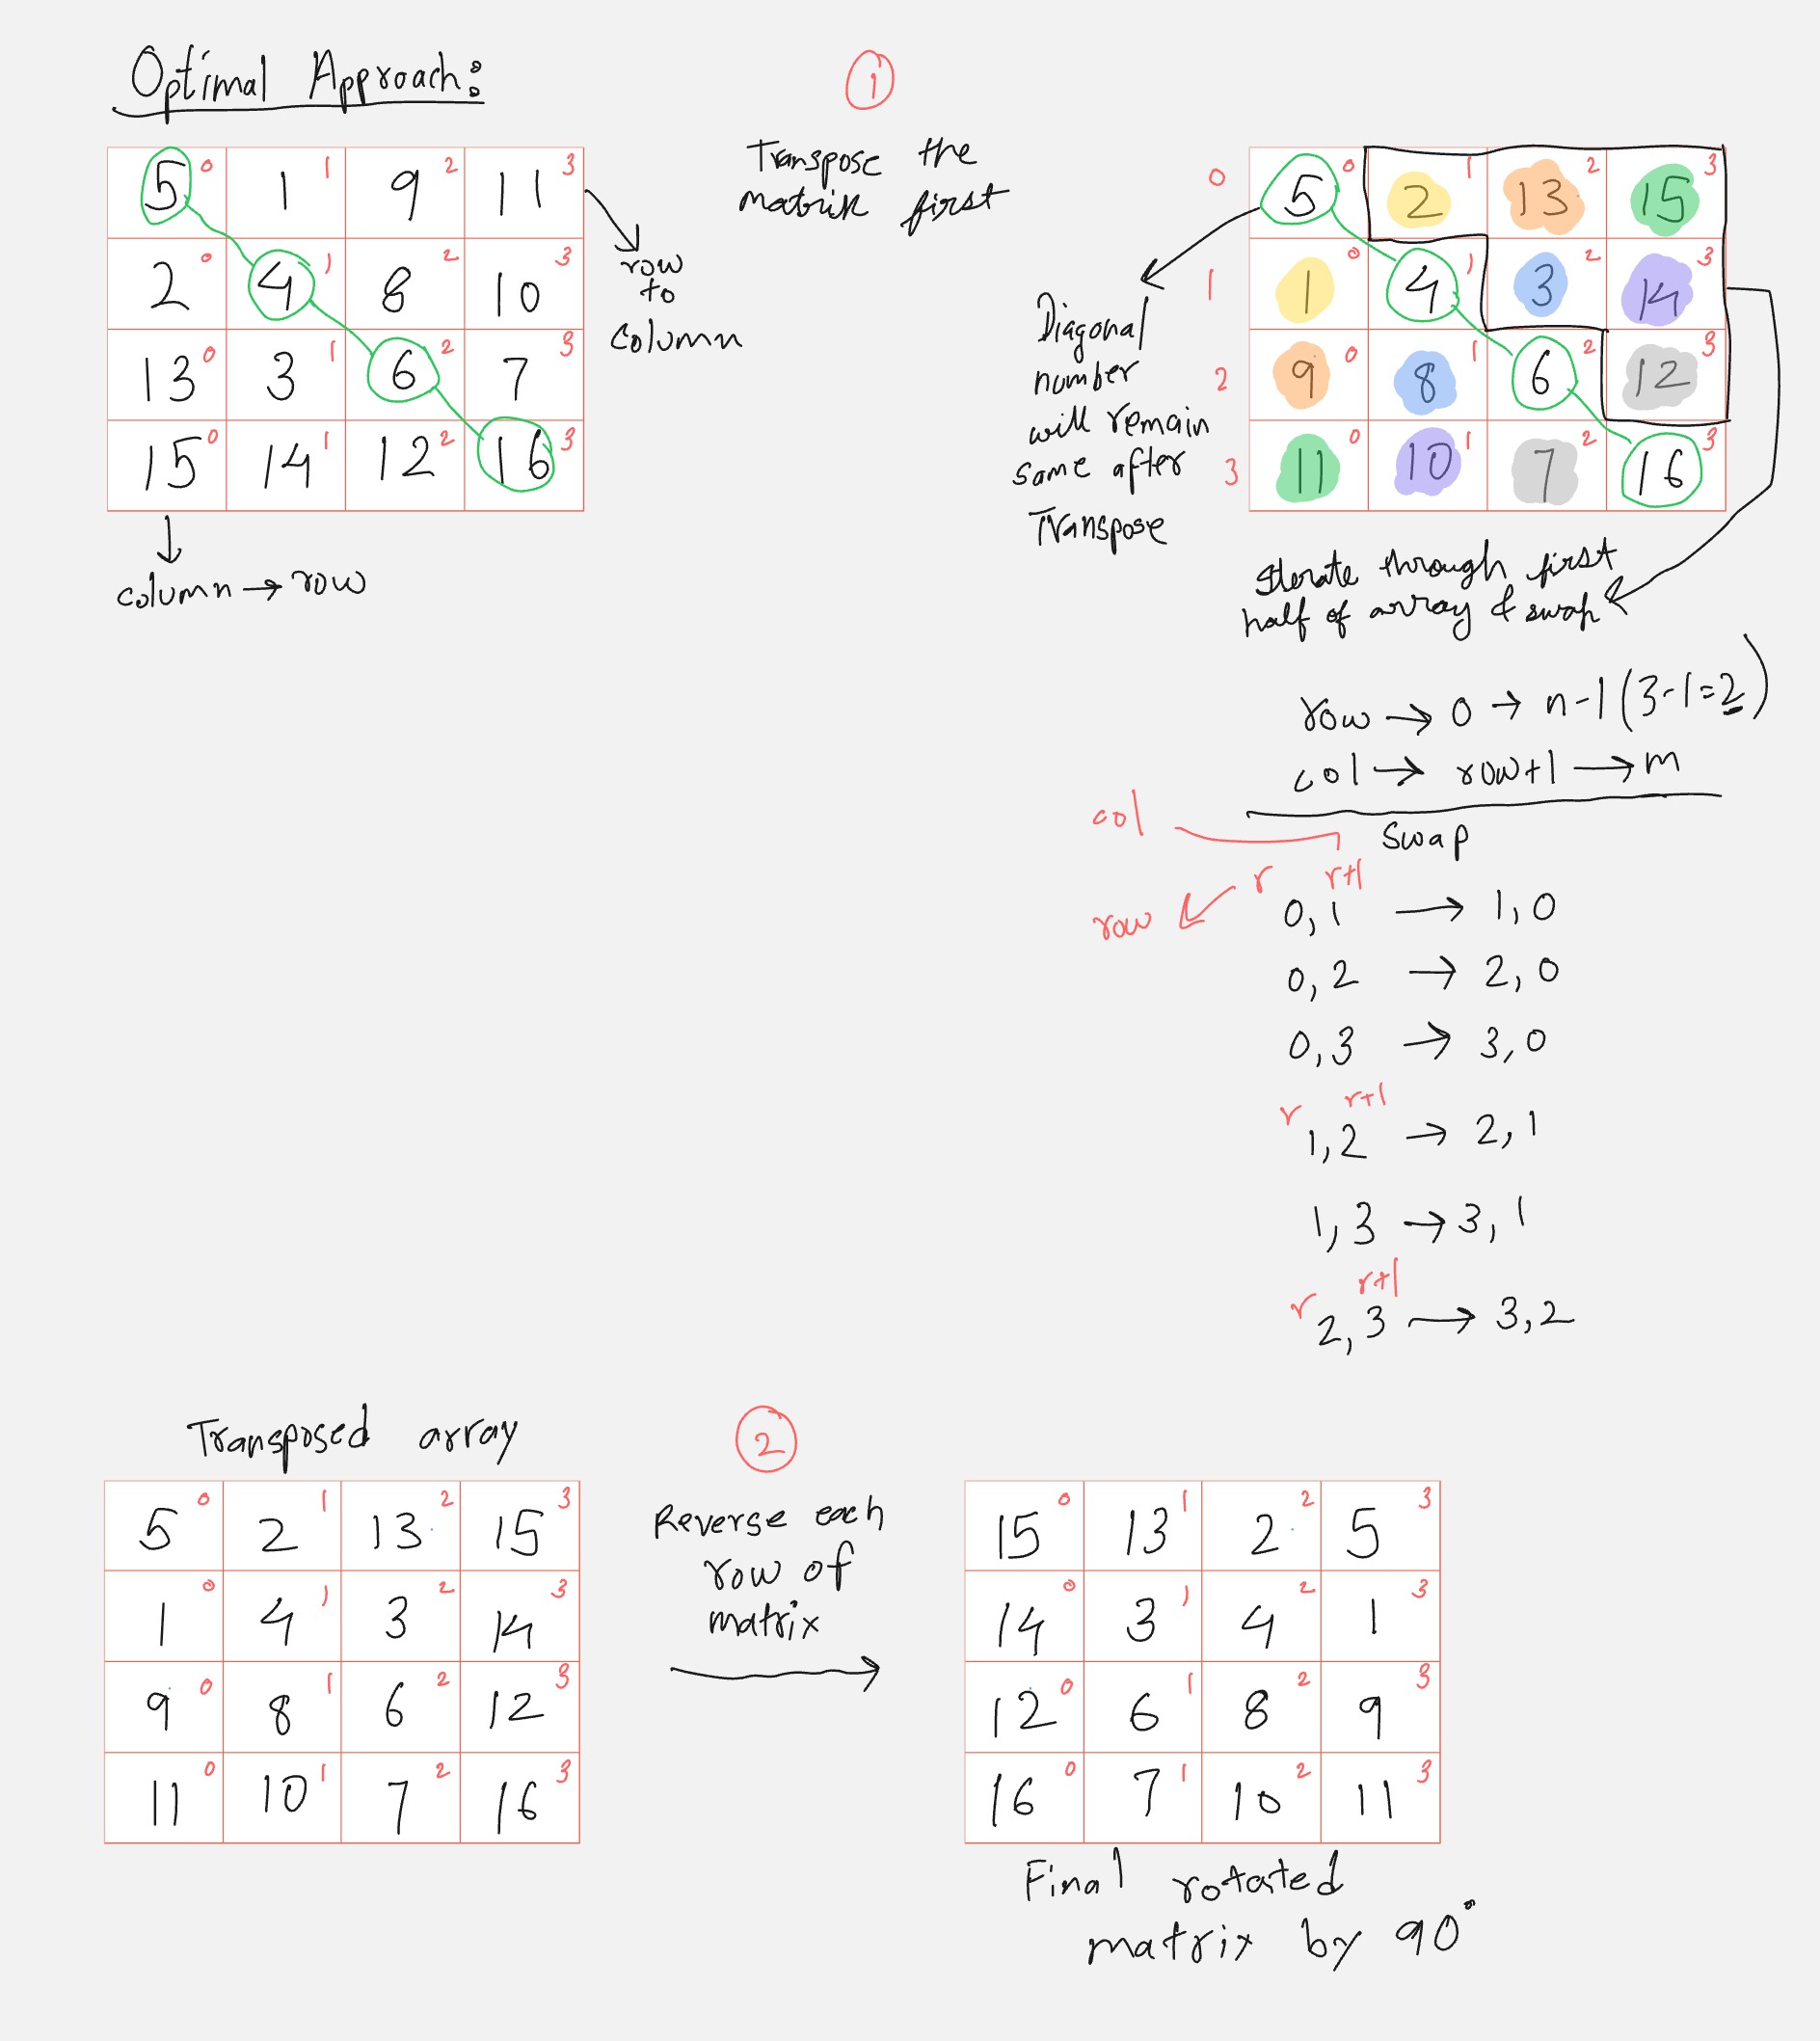 Optimal Approach:
1
Transpose the
matrix first
5 0 1 1 9 2 11 3
2 0 4 1 8 2 10 3
13 0 3 1 6 2 7 3
15 0 14 1 12 2 16 3
row
to
column
column → row
0 5 0 2 1 13 2 15 3
1 1 0 4 1 3 2 14 3
2 9 0 8 1 6 2 12 3
3 11 0 10 1 7 2 16 3
Diagonal
number
will remain
same after
Transpose
Iterate through first
half of array & swap
row → 0 → n-1 (3-1=2)
col → row+1 → m
col
Swap
row
r r+1
0,1 → 1,0
0,2 → 2,0
0,3 → 3,0
r r+1
1,2 → 2,1
1,3 → 3,1
r r+1
2,3 → 3,2
Transposed array
5 0 2 1 13 2 15 3
1 0 4 1 3 2 14 3
9 0 8 1 6 2 12 3
11 0 10 1 7 2 16 3
2
Reverse each
row of
matrix
15 0 13 1 2 2 5 3
14 0 3 1 4 2 1 3
12 0 6 1 8 2 9 3
16 0 7 1 10 2 11 3
Final rotated
matrix by 90°